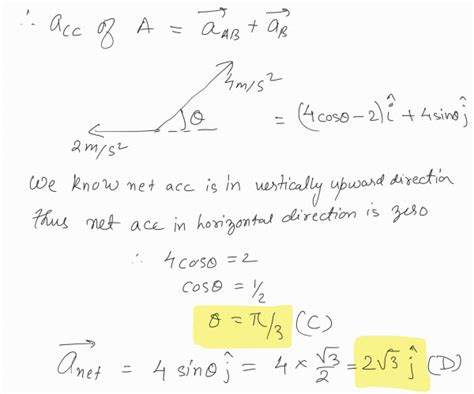 ∴ acc of A = a⃗_AB + a⃗_B
4m/s²
θ
= (4cosθ-2)î + 4sinθĵ
2m/s²
We know net acc is in vertically upward direction
thus net acc in horizontal direction is zero
∴ 4cosθ = 2
cosθ = 1/2
θ = π/3 (C)
a⃗_net = 4 sinθ ĵ = 4 × √3/2 = 2√3 ĵ (D)